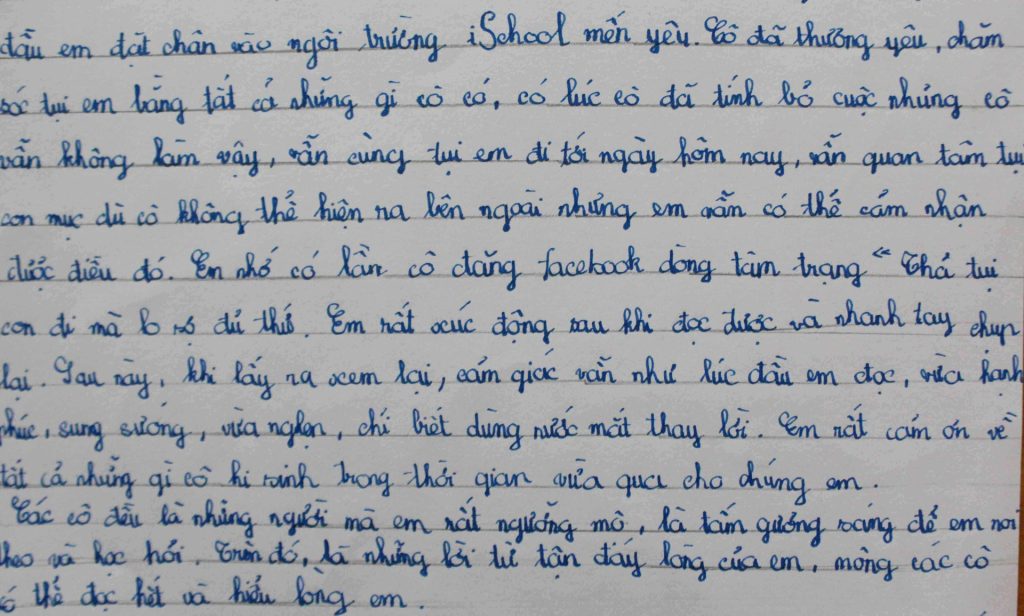 đầu em đặt chân vào ngôi trường iSchool mến yêu. Cô đã thương yêu, chăm
sóc tụi em bằng tất cả những gì cô có, có lúc cô đã tính bỏ cuộc nhưng cô
vẫn không làm vậy, vẫn cùng tụi em đi tới ngày hôm nay, vẫn quan tâm tụi
con mục dù cô không thể hiện ra bên ngoài nhưng em vẫn có thể cảm nhận
được điều đó. Em nhớ có lần cô đăng facebook dòng tâm trạng " Thả tụi
con đi mà lo sợ đủ thứ. Em rất xúc động sau khi đọc được và nhanh tay chụp
lại. Sau này, khi lấy ra xem lại, cảm giác vẫn như lúc đầu em đọc, vừa hạnh
phúc, sung sướng, vừa nghẹn, chỉ biết dùng nước mắt thay lời. Em rất cảm ơn về
tất cả những gì cô hi sinh trong thời gian vừa qua cho chúng em.
Các cô đều là những người mà em rất ngưỡng mộ, là tấm gương sáng để em noi
theo và học hỏi. Trên đó, là những lời từ tận đáy lòng của em, mong các cô
có thể đọc hết và hiểu lòng em.